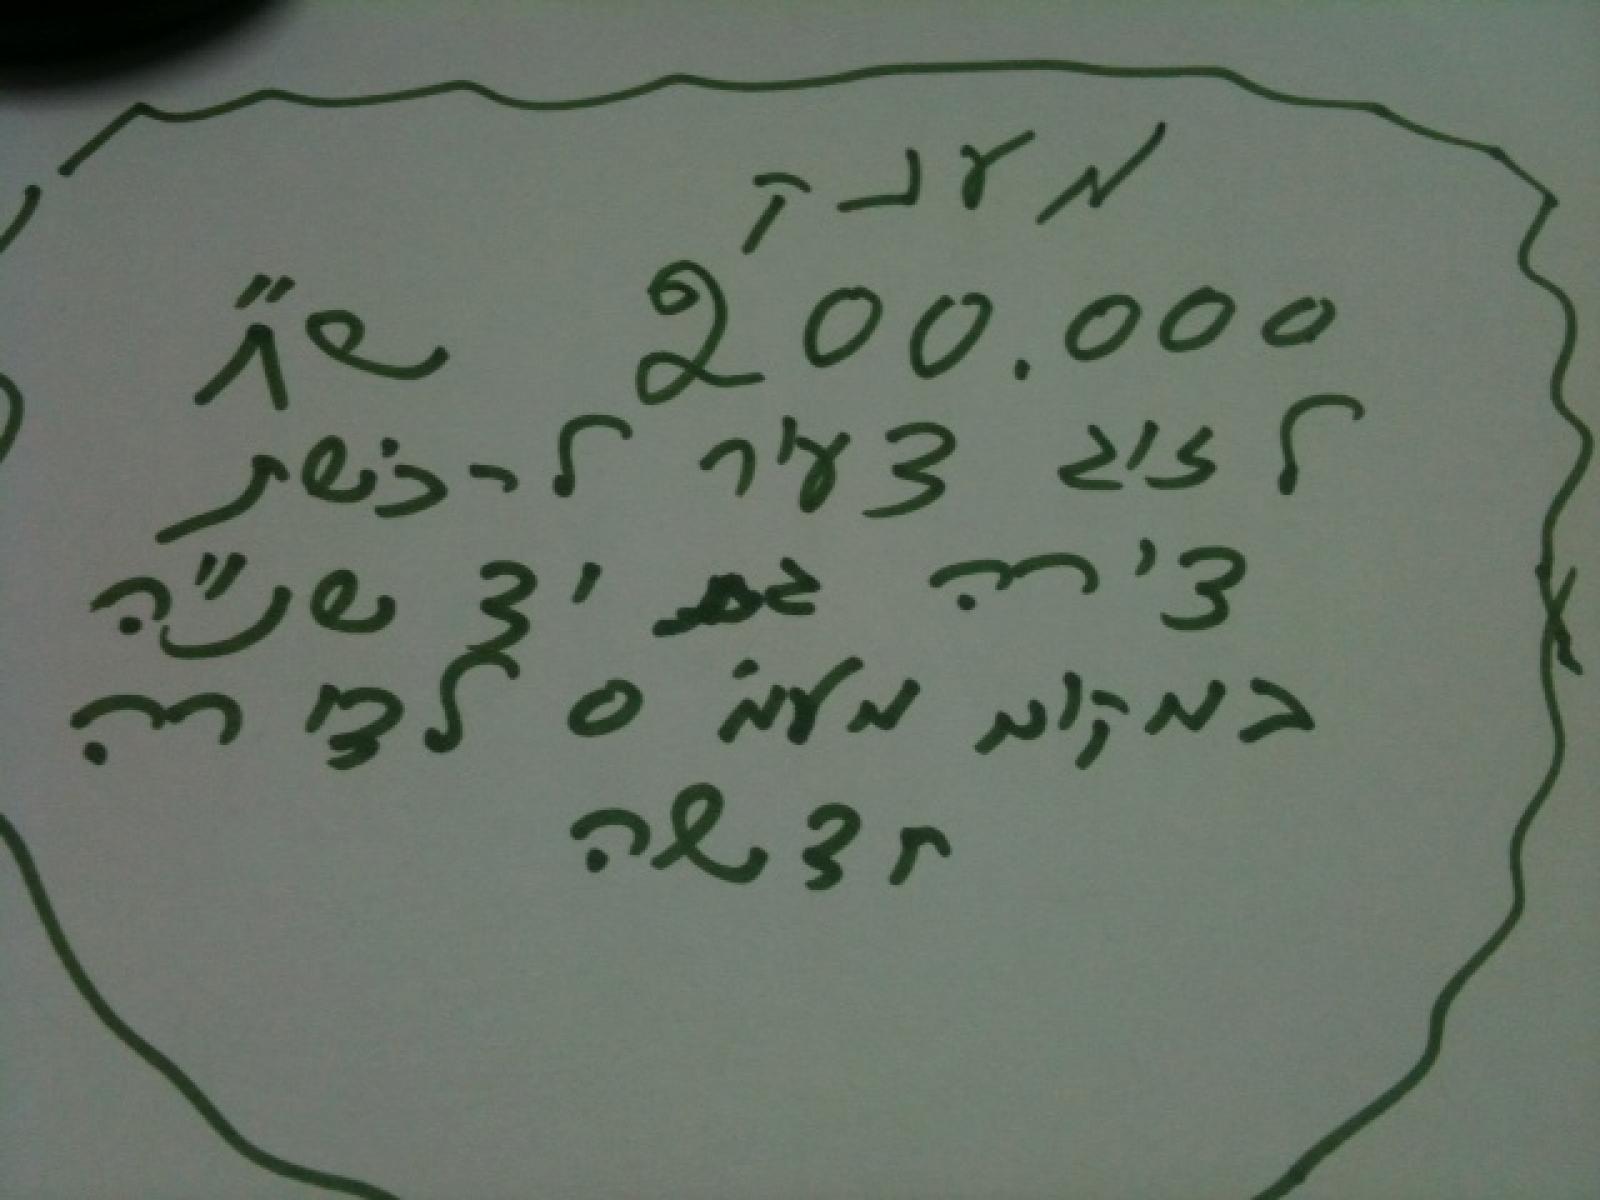 מענק
200.000 ש"ח
לזוג צעיר לרכישת
דירה גם יד שנ"ה
במקום מעמ 0 לדירה
חדשה